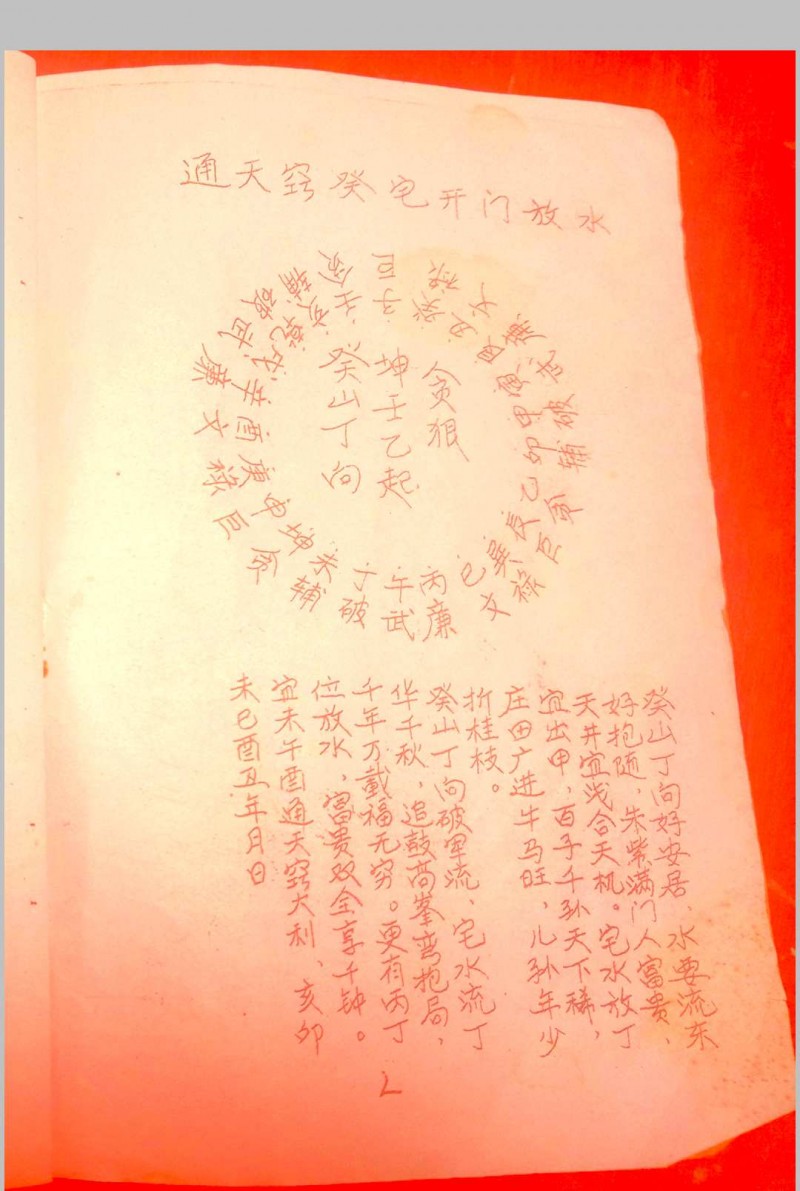 通天窍癸宅开门放水
贪巨禄文廉武破辅贪巨禄文廉武破辅贪巨禄文廉武破辅
壬子癸丑艮寅甲卯乙辰巽巳丙午丁未坤申庚酉辛戌乾亥
贪狠
坤壬乙起
癸山丁向
癸山丁向好安居、水要流东
好抱随,朱紫满门人富贵、
天井宜浅合天机。宅水放丁
宜出甲,百子千孙天下稀,
庄田广进牛马旺,儿孙年少
折桂枝。
癸山丁向破军流、宅水流丁
华千秋,追鼓高峯弯抱局,
千年万载福无穷。更有丙丁
位放水,富贵双全享千钟。
宜未午酉通天窍大利、亥卯
未巳酉丑年月日